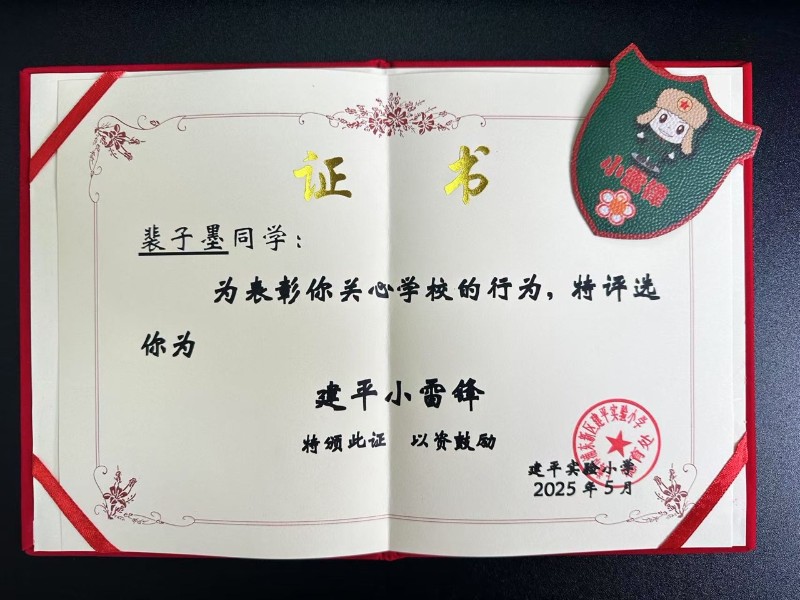 证 书
小雷锋
裴子墨同学：
为表彰你关心学校的行为，特评选
你为
建平小雷锋
特颁此证 以资鼓励
浦东新区建平实验小学
德育处
建平实验小学
2025年5月